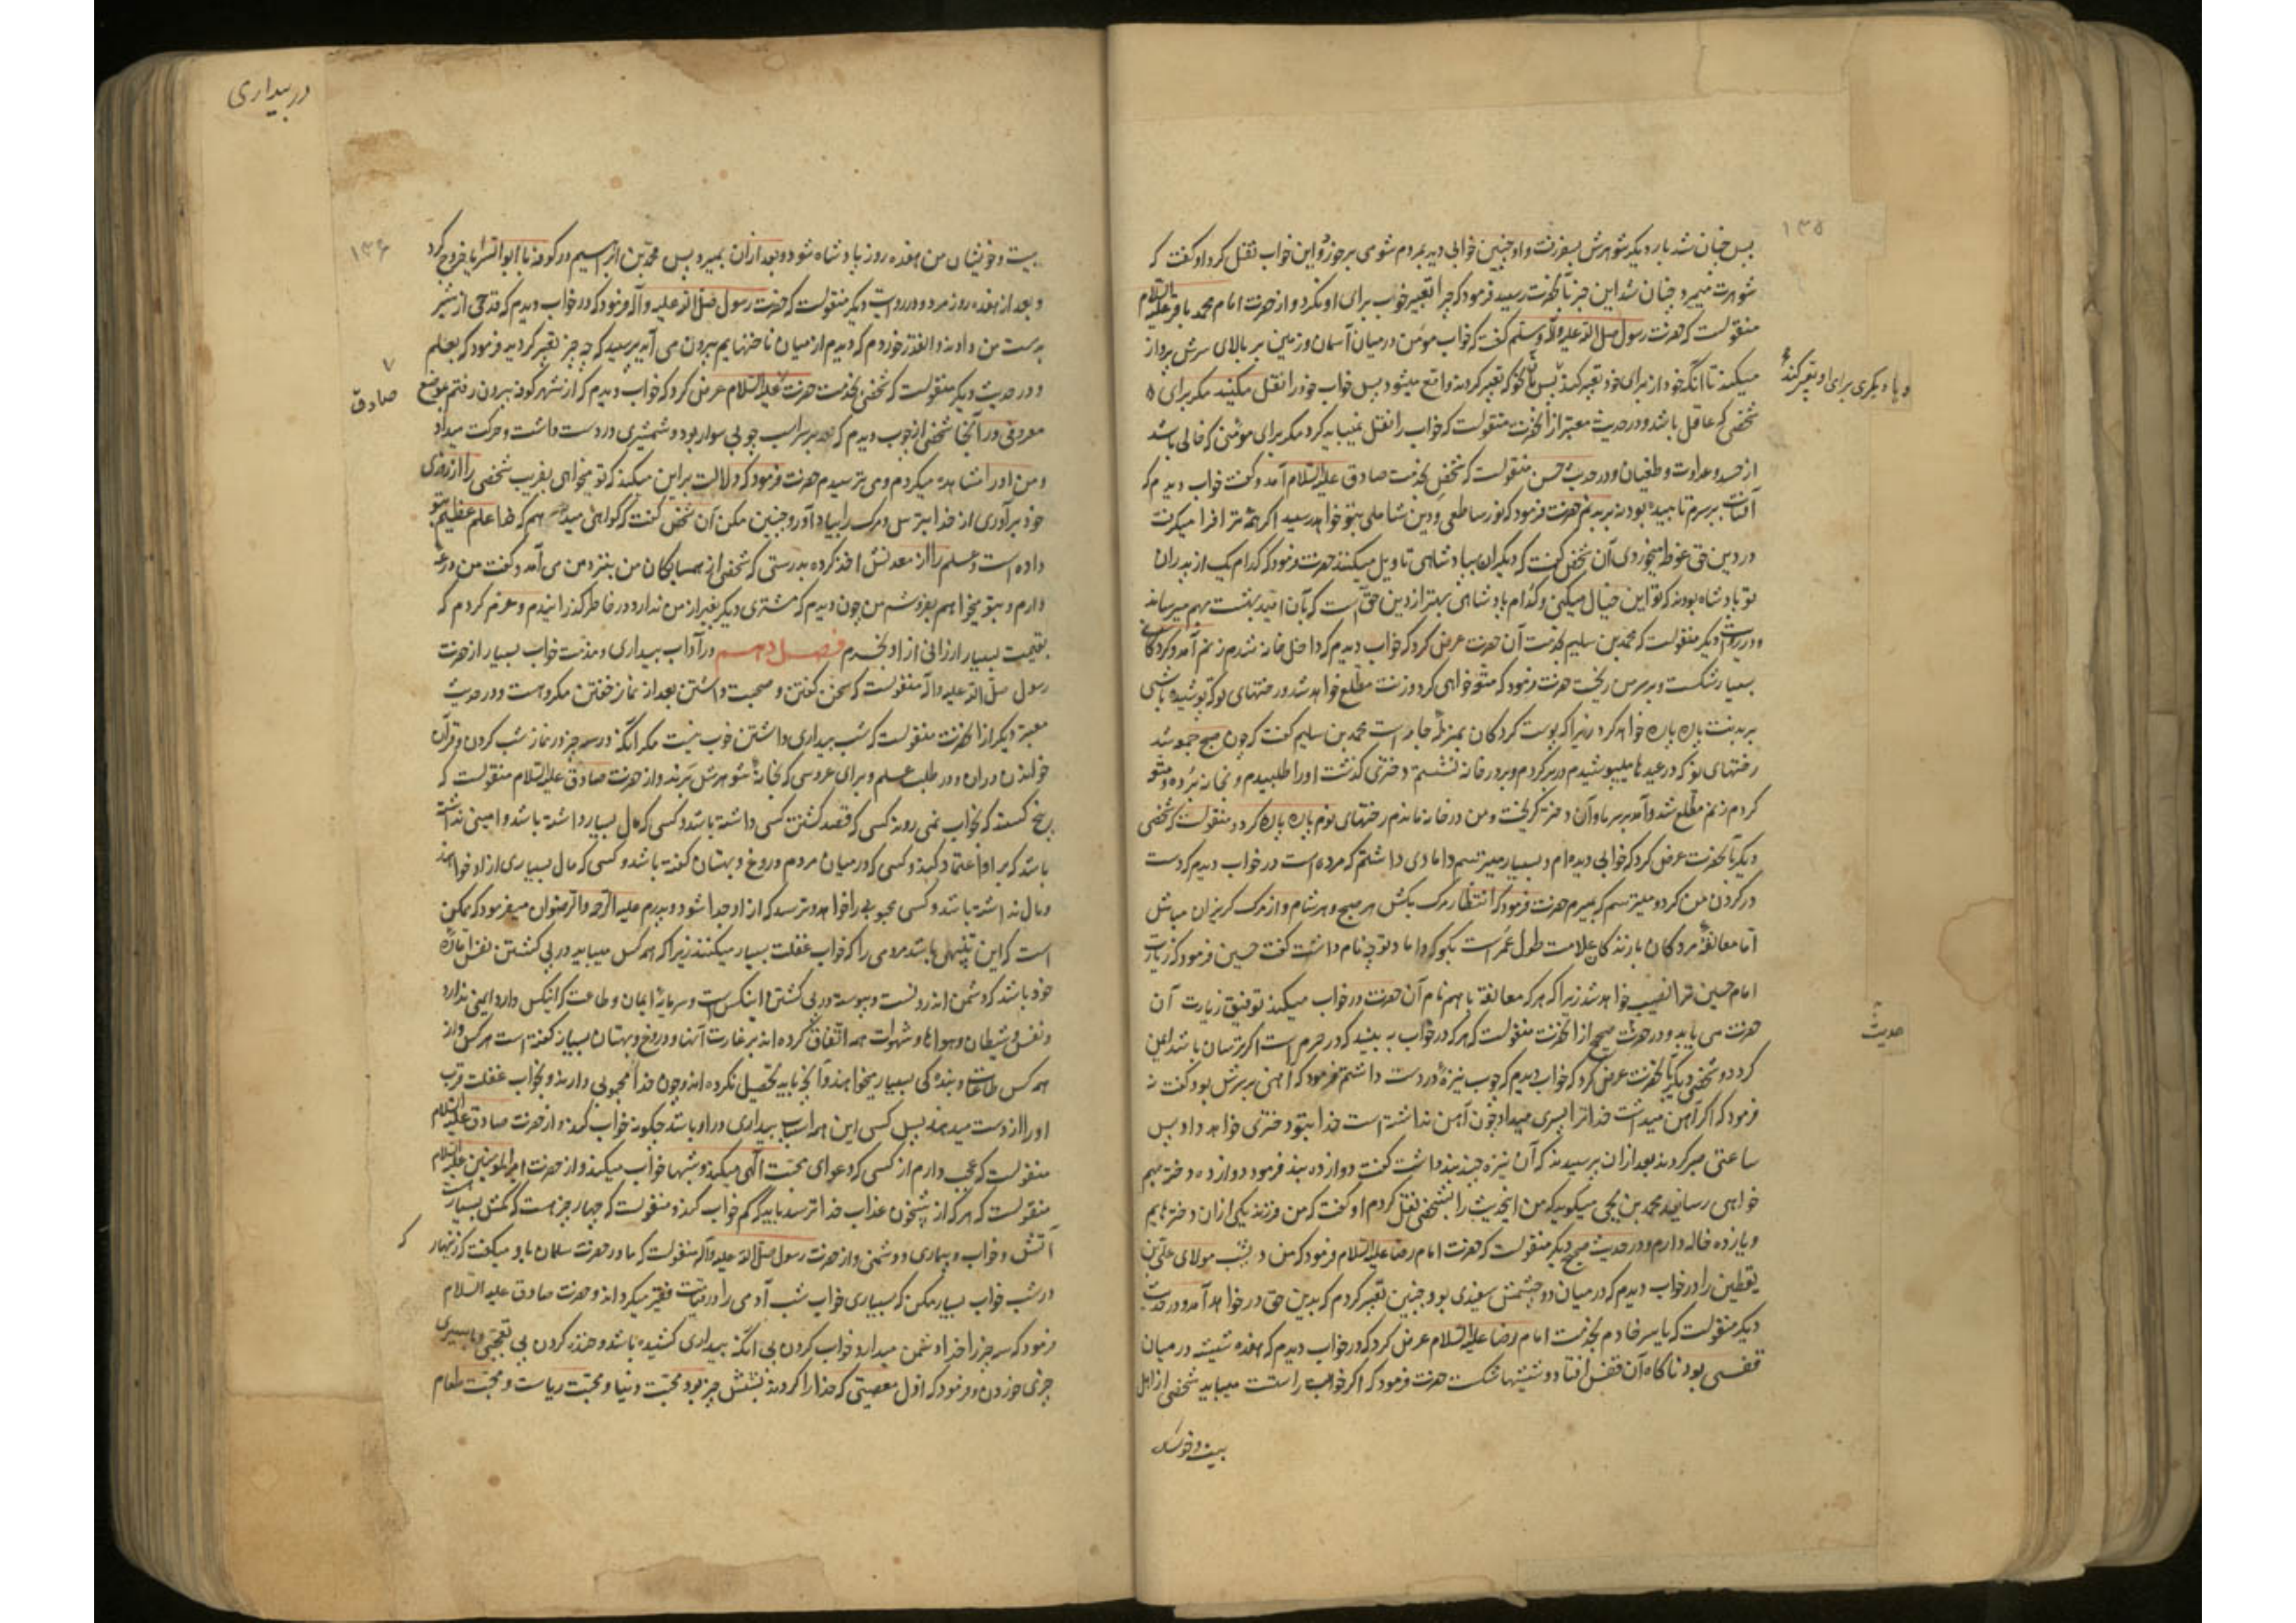 ۱۳۵
پس چنان شد بار دیگر شوهرش بسفر رفت و او چنین خوابی دید بمردم شومی برخورد و این خواب نقل کرد او گفت که
شوهرت میمیرد و چنان شد این خبر بآنحضرت رسید فرمود که چرا تعبیر خوب برای او نکرد و از حضرت امام محمد باقر علیه السلام
منقولست که حضرت رسول صلی الله علیه وآله وسلم گفت که خواب مؤمن در میان آسمان و زمین بر بالای سرش پرواز
میکند تا آنکه خود از برای خود تعبیر کند پس بآن نحو که تعبیر کردند واقع میشود پس خواب خود را نقل مکنید مگر برای
و یا دیگری برای او تعبیر کند
شخصی که عاقل باشد و در حدیث معتبر از آنحضرت منقولست که خواب را نقل نمیباید کرد مگر برای مؤمنی که خالی باشد
از حسد و عداوت و طغیان و در حدیث حسن منقولست که شخصی بخدمت صادق علیه السلام آمد و گفت خواب دیدم که
آفتاب بر سرم تابیده بود نه بر بدنم حضرت فرمود که نور ساطعی و دین شاملی بتو خواهد رسید اگر همه ترا فرا میگرفت
در دین حق غوطه میخوردی آن شخص گفت که دیگران بپادشاهی تاویل میکنند حضرت فرمود که کدام یک از پدران
تو پادشاه بودند که تو این خیال میکنی و کدام پادشاهی بهتر از دین حق است که بآن امید بهشت بهم میرسانی
و در روایت دیگر منقولست که محمد بن سلیم بخدمت آن حضرت عرض کرد که خواب دیدم که داخل خانه شدم زنم آمد و گردکانی
بسیار شکست و بر سر من ریخت حضرت فرمود که متعه خواهی کرد و زنت مطلع خواهد شد و رختهای نو که پوشیده باشی
بر بدنت پاره پاره خواهد کرد زیرا که پوست گردکان بمنزله جامه است محمد بن سلیم گفت که چون صبح جمعه شد
رختهای نو که در عیدها میپوشیدم در بر کردم و بر در خانه نشستم دختری گذشت او را طلبیدم و بخانه برده متعه
کردم زنم مطلع شد و آمد بر سر ما و آن دختر گریخت و من در خانه ماندم رختهای نوم پاره پاره کرد و منقولست که شخصی
دیگر بآنحضرت عرض کرد که خوابی دیده ام و بسیار میترسم دامادی داشتم که مرده است در خواب دیدم که دست
در گردن من کرد و میترسم که بمیرم حضرت فرمود که انتظار مرگ بکش هر صبح و هر شام و از مرگ گریزان مباش
اما معانقه مردگان با زندگان علامت طول عمر است بگو که داماد تو چه نام داشت گفت حسین فرمود که زیارت
امام حسین ترا نصیب خواهد شد زیرا که هر که معانقه با هم نام آن حضرت در خواب میکند توفیق زیارت آن
حضرت می یابد و در حدیث صحیح از آنحضرت منقولست که هر که در خواب به بیند که در حرم است اگر ترسان باشد ایمن
حدیث
گردد و شخصی دیگر بآنحضرت عرض کرد که خواب دیدم که چوب نیزه در دست داشتم فرمود که آهنی بر سرش بود گفت نه
فرمود که اگر آهن میداشت خدا ترا پسری میداد چون آهن نداشته است خدا بتو دختری خواهد داد پس
ساعتی صبر کردند بعد از آن پرسیدند که آن نیزه چند بند داشت گفت دوازده بند فرمود دوازده دختر بهم
خواهی رسانید محمد بن یحیی میگوید که من اینحدیث را بشخصی نقل کردم او گفت که من فرزند یکی از آن دخترهایم
و یازده خاله دارم و در حدیث صحیح دیگر منقولست که حضرت امام رضا علیه السلام فرمود که من دیشب مولای علی بن
یقطین را در خواب دیدم که در میان دو چشمش سفیدی بود چنین تعبیر کردم که بدین حق در خواهد آمد و در حدیث
دیگر منقولست که یاسر خادم بخدمت امام رضا علیه السلام عرض کرد که در خواب دیدم که هفده شیشه در میان
قفسی بود ناگاه آن قفس افتاد و شیشها شکست حضرت فرمود که اگر خوابت راست است میباید شخصی از اهل
بیت و خویشان
در بیداری
۱۳۶
بیت و خویشان من هفده روز پادشاه شود و بعد از آن بمیرد پس محمد بن ابراهیم در کوفه با ابوالسرایا خروج کرد
و بعد از هفده روز مرد و در روایت دیگر منقولست که حضرت رسول صلی الله علیه وآله فرمود که در خواب دیدم که قدحی از شیر
بدست من دادند و آنقدر خوردم که دیدم از میان ناخنهایم بیرون می آید پرسید که چه چیز تعبیر کردید فرمود که بعلم
و در حدیث دیگر منقولست که شخصی بخدمت حضرت علیه السلام عرض کرد که خواب دیدم که از شهر کوفه بیرون رفتم بموضع
۷
صادق
معروفی و در آنجا شخصی از چوب دیدم که بر اسب چوبی سوار بود و شمشیری در دست داشت و حرکت میداد
و من او را مشاهده میکردم و می ترسیدم حضرت فرمود که دلالت بر این میکند که تو میخواهی بفریب شخصی را از روزی
خود برآوری از خدا بترس و مرگ را بیاد آور و چنین مکن آن شخص گفت که گواهی میدهم که خدا علم عظیم بتو
داده است و علم را از معدنش اخذ کرده بدرستی که شخصی از همسایگان من بنزد من می آمد و گفت من مزرعه
دارم و بتو میخواهم بفروشم من چون دیدم که مشتری دیگر بغیر از من ندارد در خاطر گذرانیدم و عزم کردم که
بقیمت بسیار ارزانی از او بخرم فصل دهم در آداب بیداری و مذمت خواب بسیار از حضرت
رسول صلی الله علیه وآله منقولست که سخن گفتن و صحبت داشتن بعد از نماز خفتن مکروهست و در حدیث
معتبر دیگر از آنحضرت منقولست که شب بیداری داشتن خوب نیست مگر آنکه در سه چیز در نماز شب کردن و قرآن
خواندن و در طلب علم و برای عروسی که بخانه شوهرش برند و از حضرت صادق علیه السلام منقولست که
پنج کسند که بخواب نمی روند کسی که قصد کشتن کسی داشته باشد و کسی که مال بسیار داشته باشد و امینی نداشته
باشد که بر او اعتماد کند و کسی که در میان مردم دروغ و بهتان گفته باشد و کسی که مال بسیاری از او خواهند
و مال نداشته باشد و کسی محبوبی را خواهد و ترسد که از او جدا شود و پدرم علیه الرحمه والرضوان میفرمود که ممکن
است که این تنبیهی باشد مردمی را که خواب غفلت بسیار میکنند زیرا که هر کس میباید در پی کشتن نفس اماره
خود باشد که دشمن اندرونست و پیوسته در پی کشتن اینکس است و سرمایه ایمان و طاعت که اینکس دارد ایمنی ندارد
و نفس و شیطان و هواها و شهوات همه اتفاق کرده اند بر غارت آنها و دروغ و بهتان بسیار گفته است هر کس و از
همه کس طاعت و بندگی بسیار میخواهند و آنچه باید تحصیل نکرده اند و چون خدا محبوبی دارند و بخواب غفلت قرب
او را از دست میدهند پس کسی این همه اسباب بیداری در او باشد چگونه خواب کند و از حضرت صادق علیه السلام
منقولست که عجب دارم از کسی که دعوای محبت الهی میکند و شبها خواب میکند و از حضرت امیرالمؤمنین علیه السلام
منقولست که هر که از شبیخون عذاب خدا ترسد باید که کم خواب کند و منقولست که چهار چیز هست که کمش بسیار است
آتش و خواب و بیماری و دشمنی و از حضرت رسول صلی الله علیه وآله منقولست که مادر حضرت سلمان باو میگفت که زنهار
که
در شب خواب بسیار مکن که بسیاری خواب شب آدمی را در قیامت فقیر میگرداند و حضرت صادق علیه السلام
فرمود که سه چیز را خدا دشمن میدارد خواب کردن بی آنکه بیداری کشیده باشد و خنده کردن بی تعجبی و با سیری
چیزی خوردن و فرمود که اول معصیتی که خدا را کردند بشش چیز بود محبت دنیا و محبت ریاست و محبت طعام